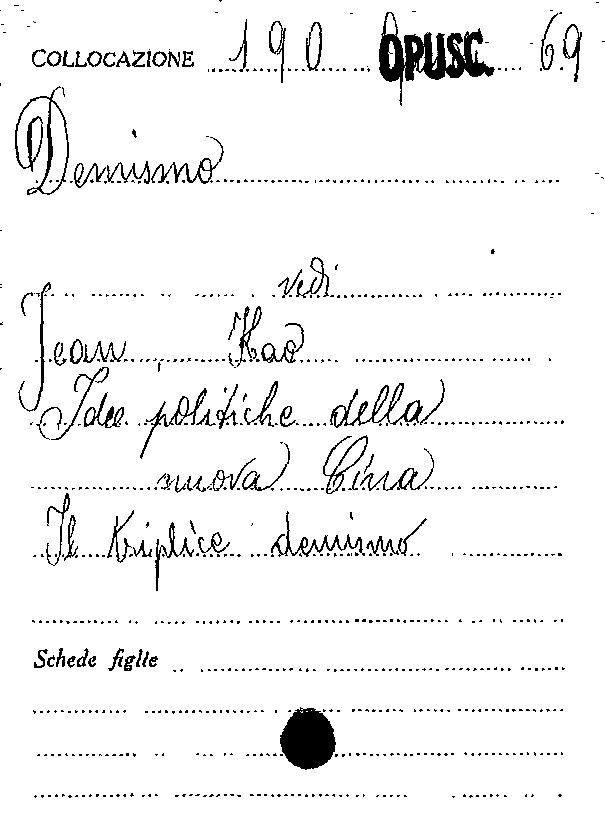 COLLOCAZIONE 190 OPUSC. 69
Demismo
vedi
Jean Kao
Idee politiche della
nuova Cina
Il triplice demismo
Schede figlie